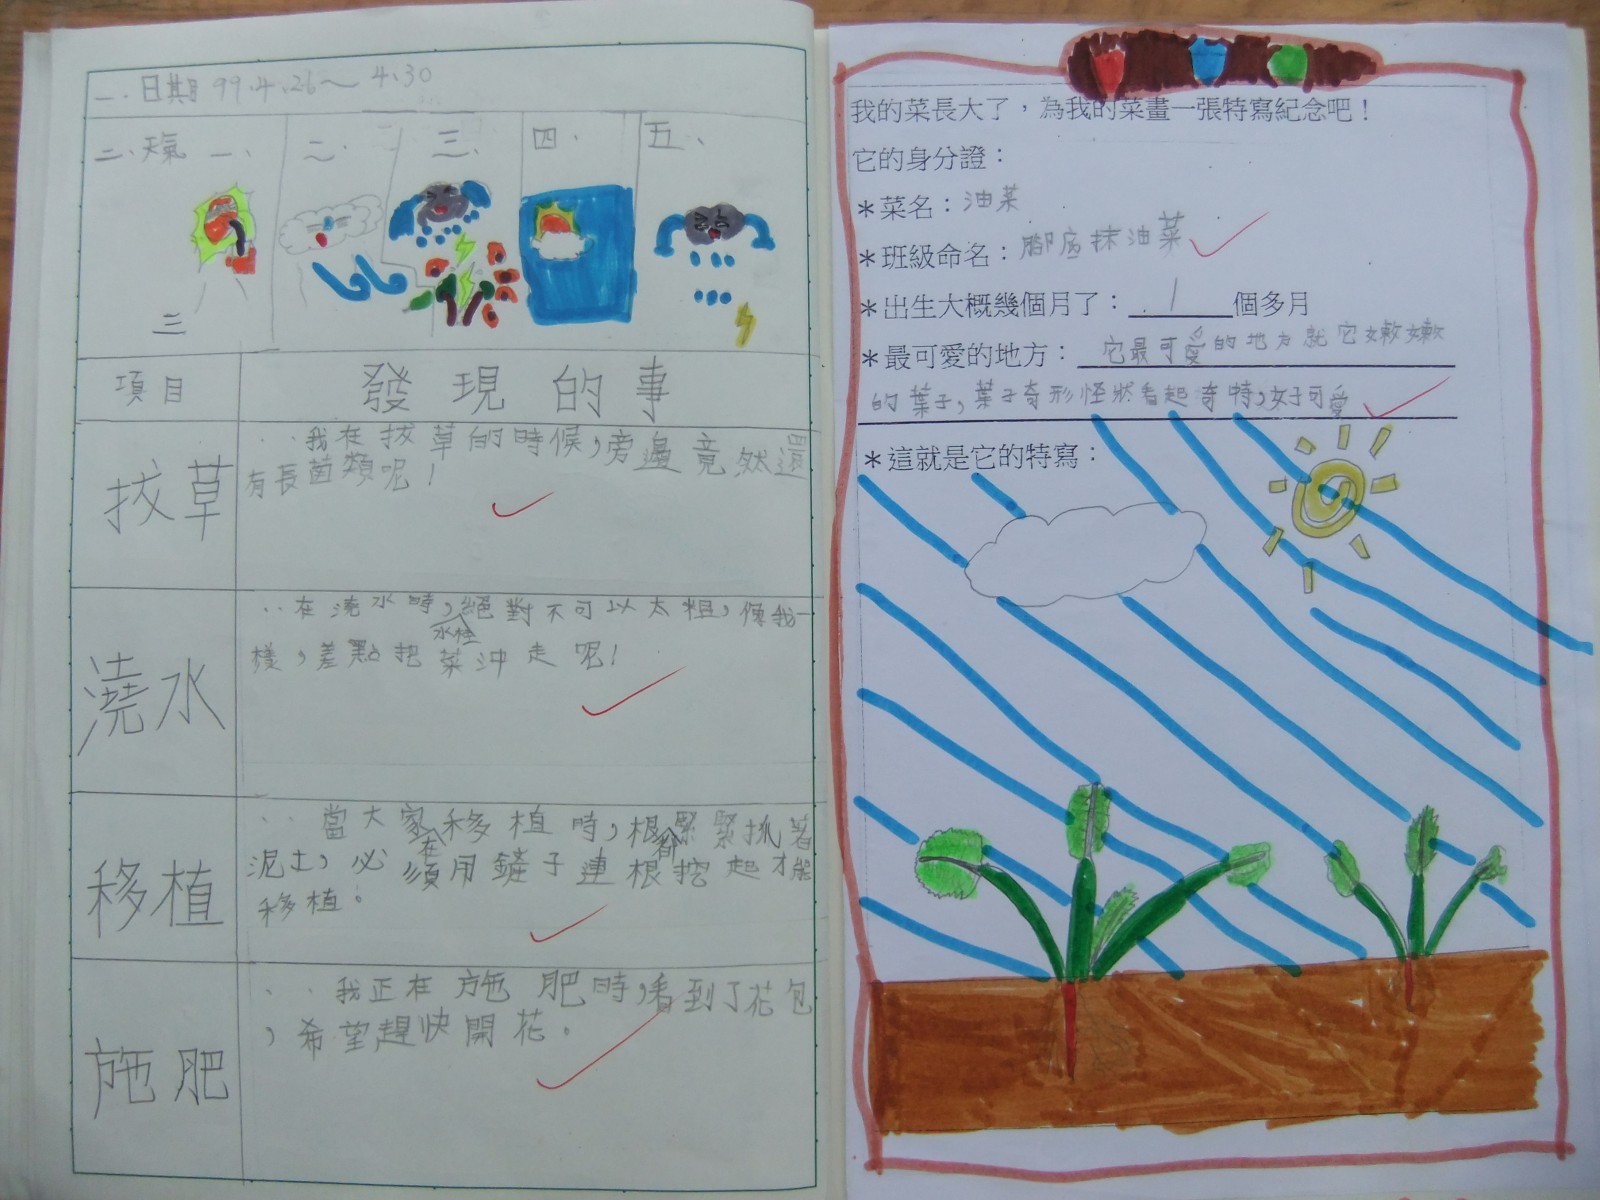 一、日期 99.4.26～4.30
二、天氣 一、 二、 三、 四、 五、
三
項目 發現的事
拔草
我在拔草的時候，旁邊竟然還
有長菌類呢！
澆水
在澆水時，水柱絕對不可以太粗，像我一
樣，差點把菜沖走呢！
移植
當大家在移植時，根會緊緊抓著
泥土，必須用鏟子連根挖起才能
移植。
施肥
我正在施肥時，看到了花包
，希望趕快開花。
我的菜長大了，為我的菜畫一張特寫紀念吧！
它的身分證：
＊菜名：油菜
＊班級命名：腳底抹油菜
＊出生大概幾個月了：1個多月
＊最可愛的地方：它最可愛的地方就它嫩嫩
的葉子，葉子奇形怪狀看起奇特，好可愛
＊這就是它的特寫：